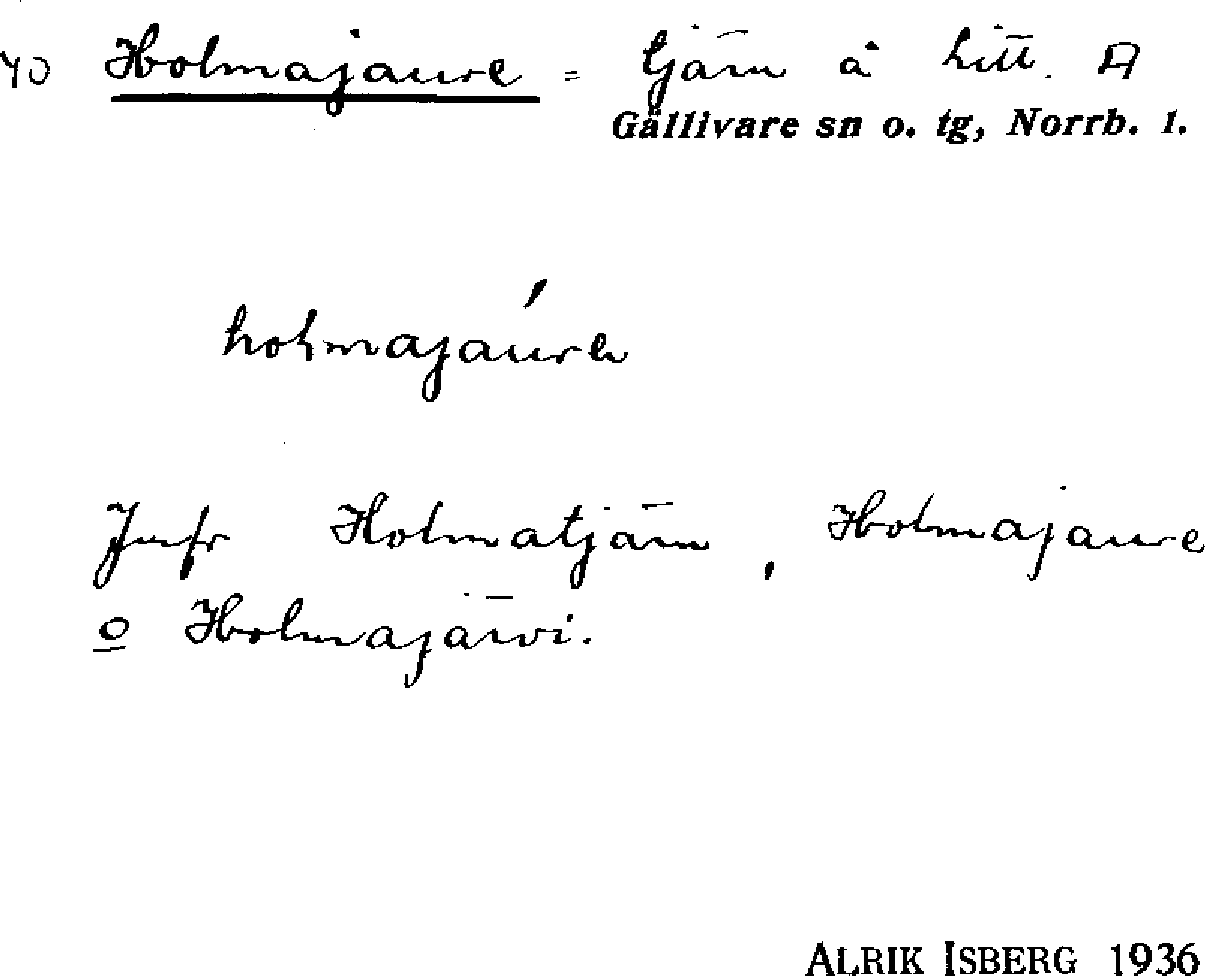 40 Holmajaure = tjärn å Litt. A
Gällivare sn o. tg, Norrb. l.
holmajáure
Jmfr Holmatjärn, Holmajaure
o Holmajärvi.
ALRIK ISBERG 1936